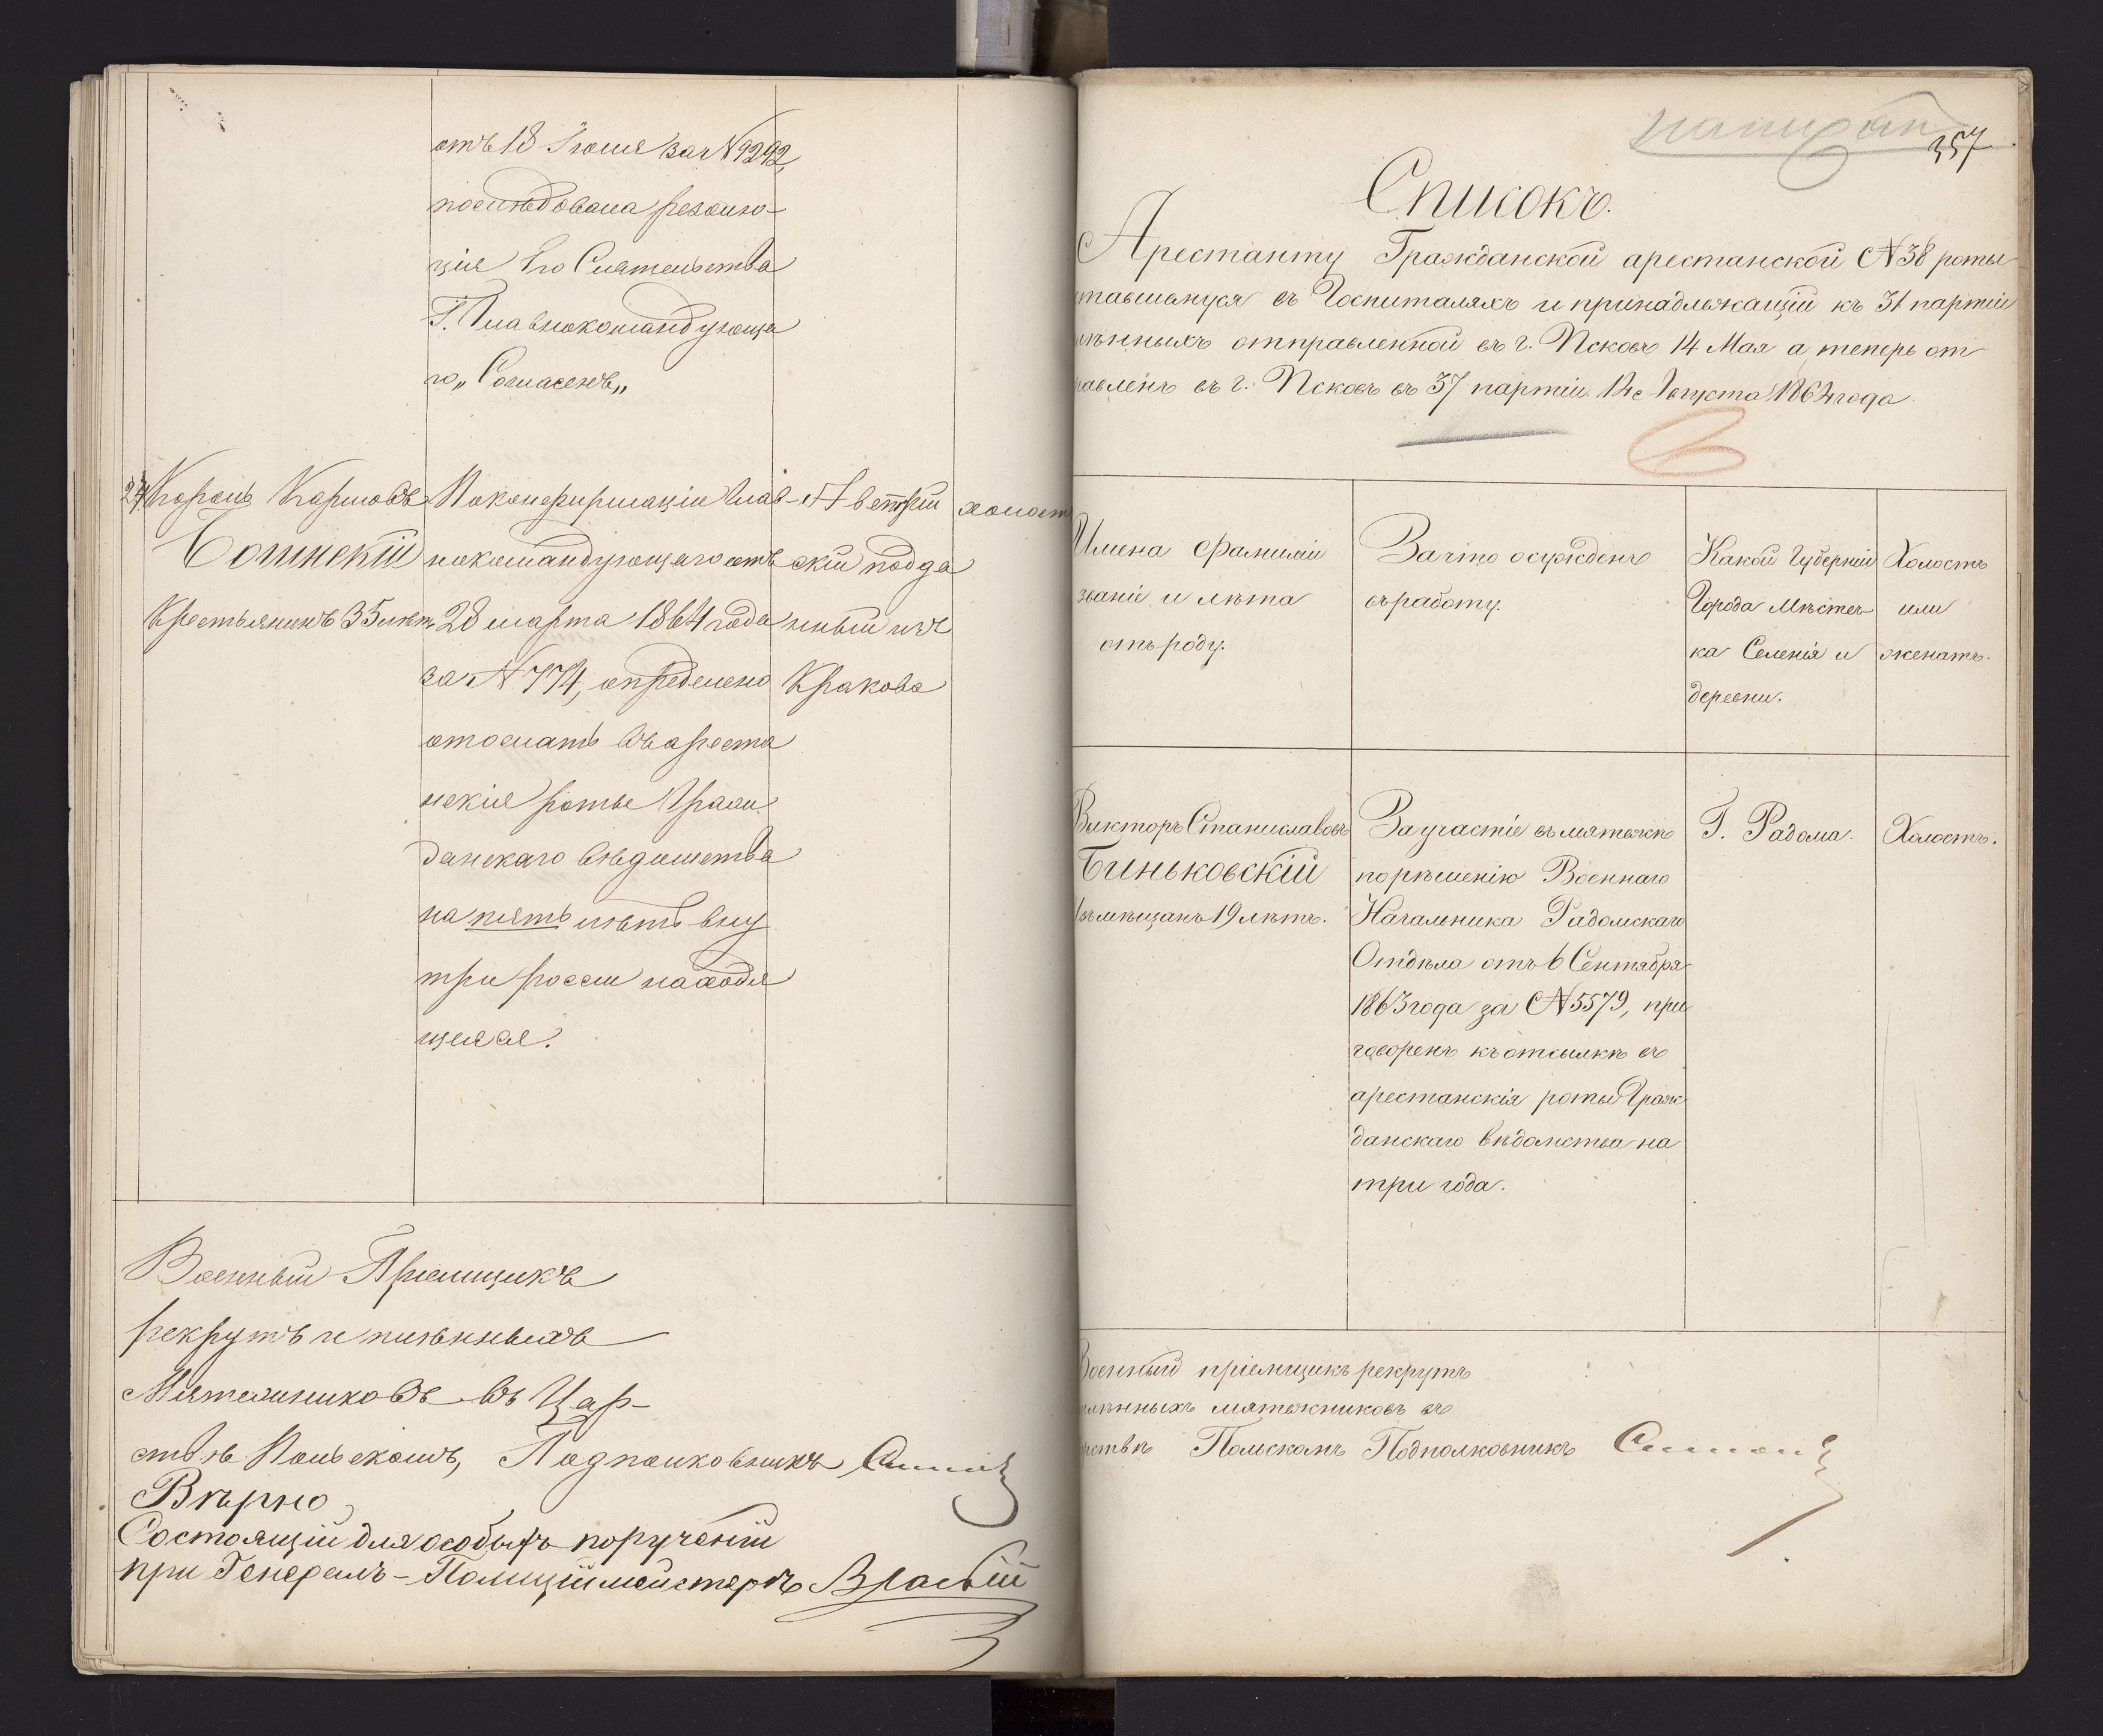 отъ 18 Іюля за N 9292,
последовала резолю-
ція Его Сіятельства
Г. Главнокомандующа
го „Согласенъ„
24 Кароль Карловъ
Покон­фирмаціи Глав-
Австрій
холостъ
нокомандующаго отъ
скій подда
Крестьянинъ 35 лѣтъ
28 марта 1864 года
ный изъ
за N 774, определено
Кракова
отослать въареста
нскія роты Граж
данскаго вѣдомства
на пять лѣтъ вну
три россіи находя
щеяся.
Военный Пріемщикъ
рекрутъ и плѣнныхъ
Мятежниковъ въ Цар-
ствѣ Польскомъ, Подполковникъ
Вѣрно
Состоящій для особыхъ порученій
при Генералъ-Полиціймейстерѣ
357
Списокъ.
Арестанту Гражданской арестанской N 38 роты
тавшемуся въ Госпиталяхъ и принадлежащій къ 31 партіи
лѣнныхъ отправленной въ г. Псковъ 14 Мая а теперь от
равленъ въ г. Псковъ въ 37 партіи 12 Августа 1864 года.
Имена Фамиліи
званіе и лѣта
отъ роду.
За что осужденъ
въ работу.
Какой Губерніи
Города Мѣстеч
ка Селенія и
деревни.
Холостъ
или
женатъ.
Викторъ Станиславовъ
Биньковскій
Изъ мѣщанъ 19 лѣтъ.
За участіе въ мятежѣ
по рѣшенію Военнаго
Начальника Радомскаго
Отдѣла отъ 6 Сентября
1863 года за N 5579, при
говоренъ къ отсылкѣ въ
арестанскія роты Граж
данскаго вѣдомства на
три года.
Г. Радома.
Холостъ.
Военный пріемщикъ рекрутъ
лѣнныхъ мятежниковъ въ
рствѣ Польскомъ Подполковникъ